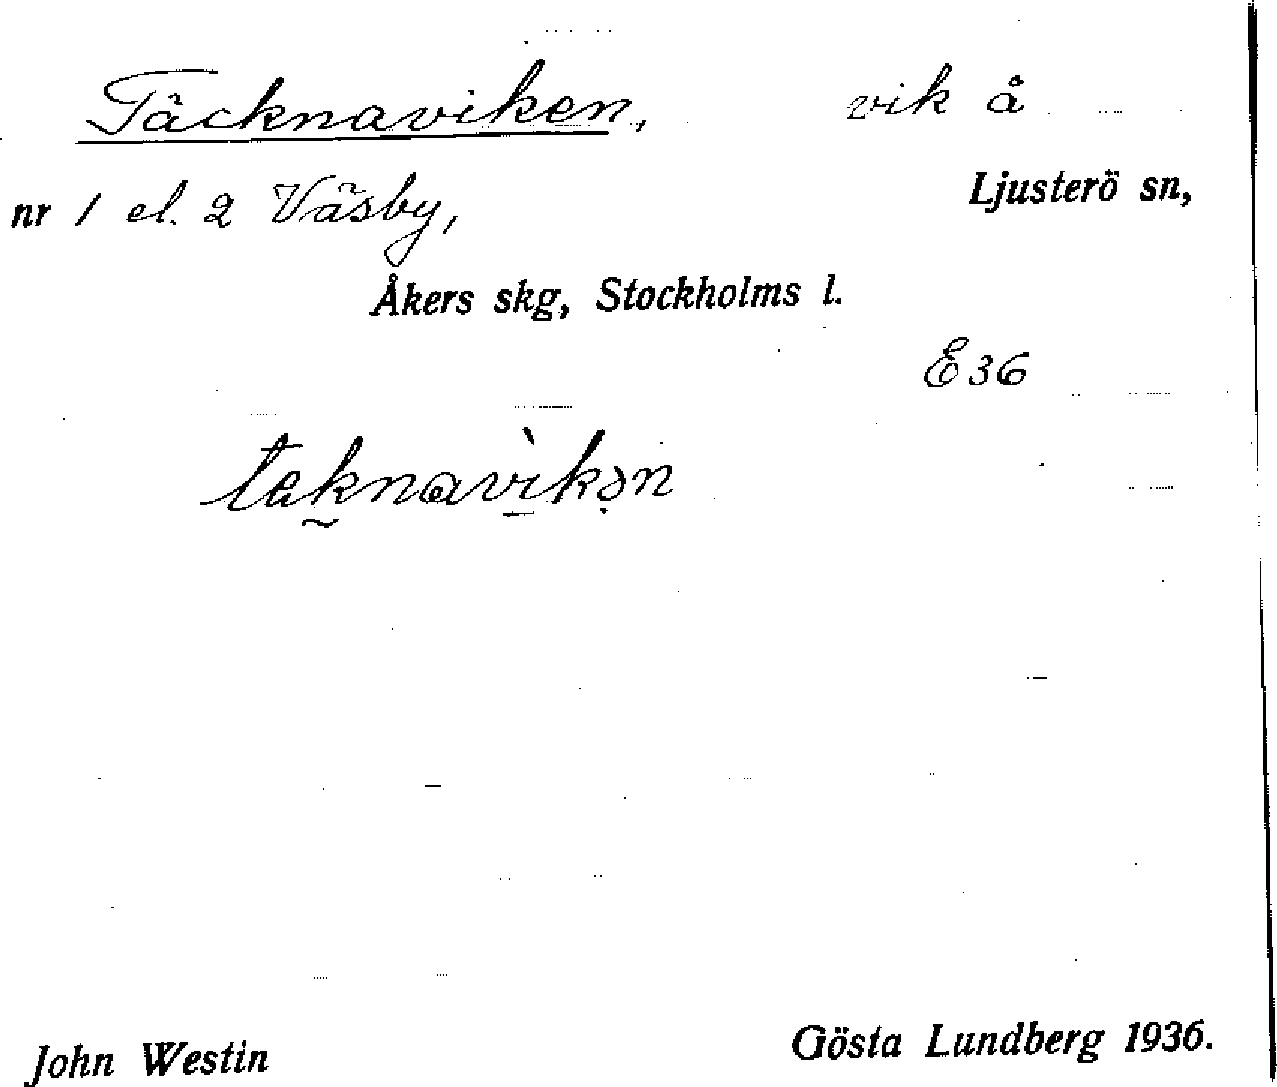 Täcknaviken, vik å
nr 1 el. 2 Väsby, Ljusterö sn,
Åkers skg, Stockholms l.
E 36
tæknavìkən
John Westin Gösta Lundberg 1936.